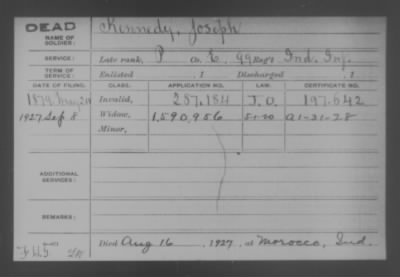 DEAD
NAME OF SOLDIER: Kennedy, Joseph
SERVICE: Late rank, P Co. E, 99 Reg't Ind. Inf.
TERM OF SERVICE: Enlisted , 1 Discharged , 1
DATE OF FILING. CLASS. APPLICATION NO. LAW. CERTIFICATE NO.
1879 Invalid, 287.184 197.642
1927 Sep 8 Widow, 1,590,956 5-1-20 a1-31-28
Minor,
ADDITIONAL SERVICES:
REMARKS:
Died Aug 16, 1927, at Morocco, Ind.